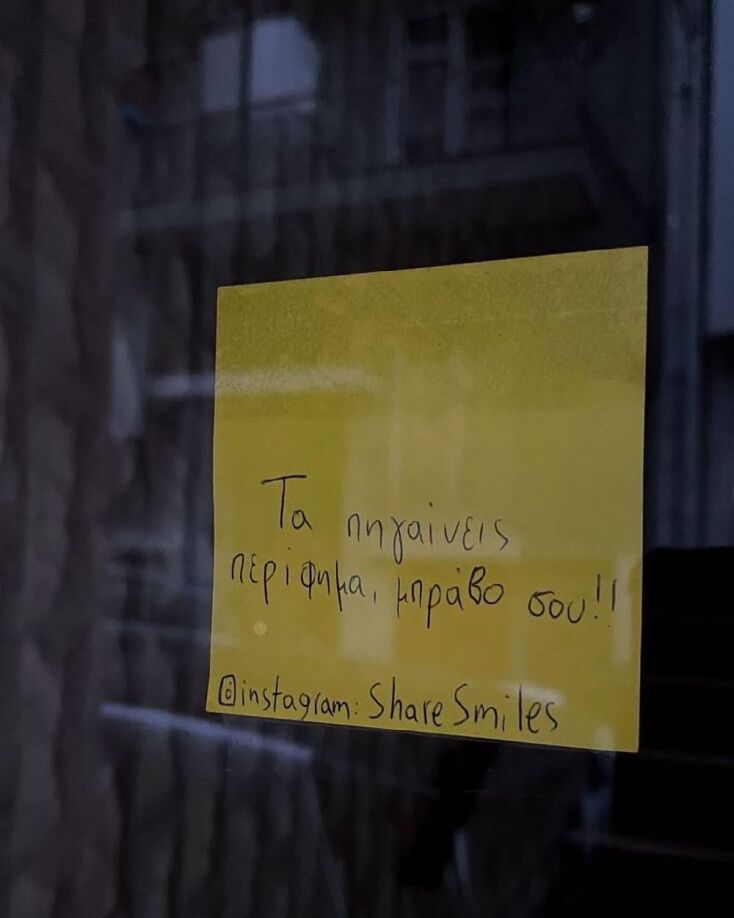 Τα πηγαίνεις
περίφημα, μπράβο σου!!
instagram: Share Smiles